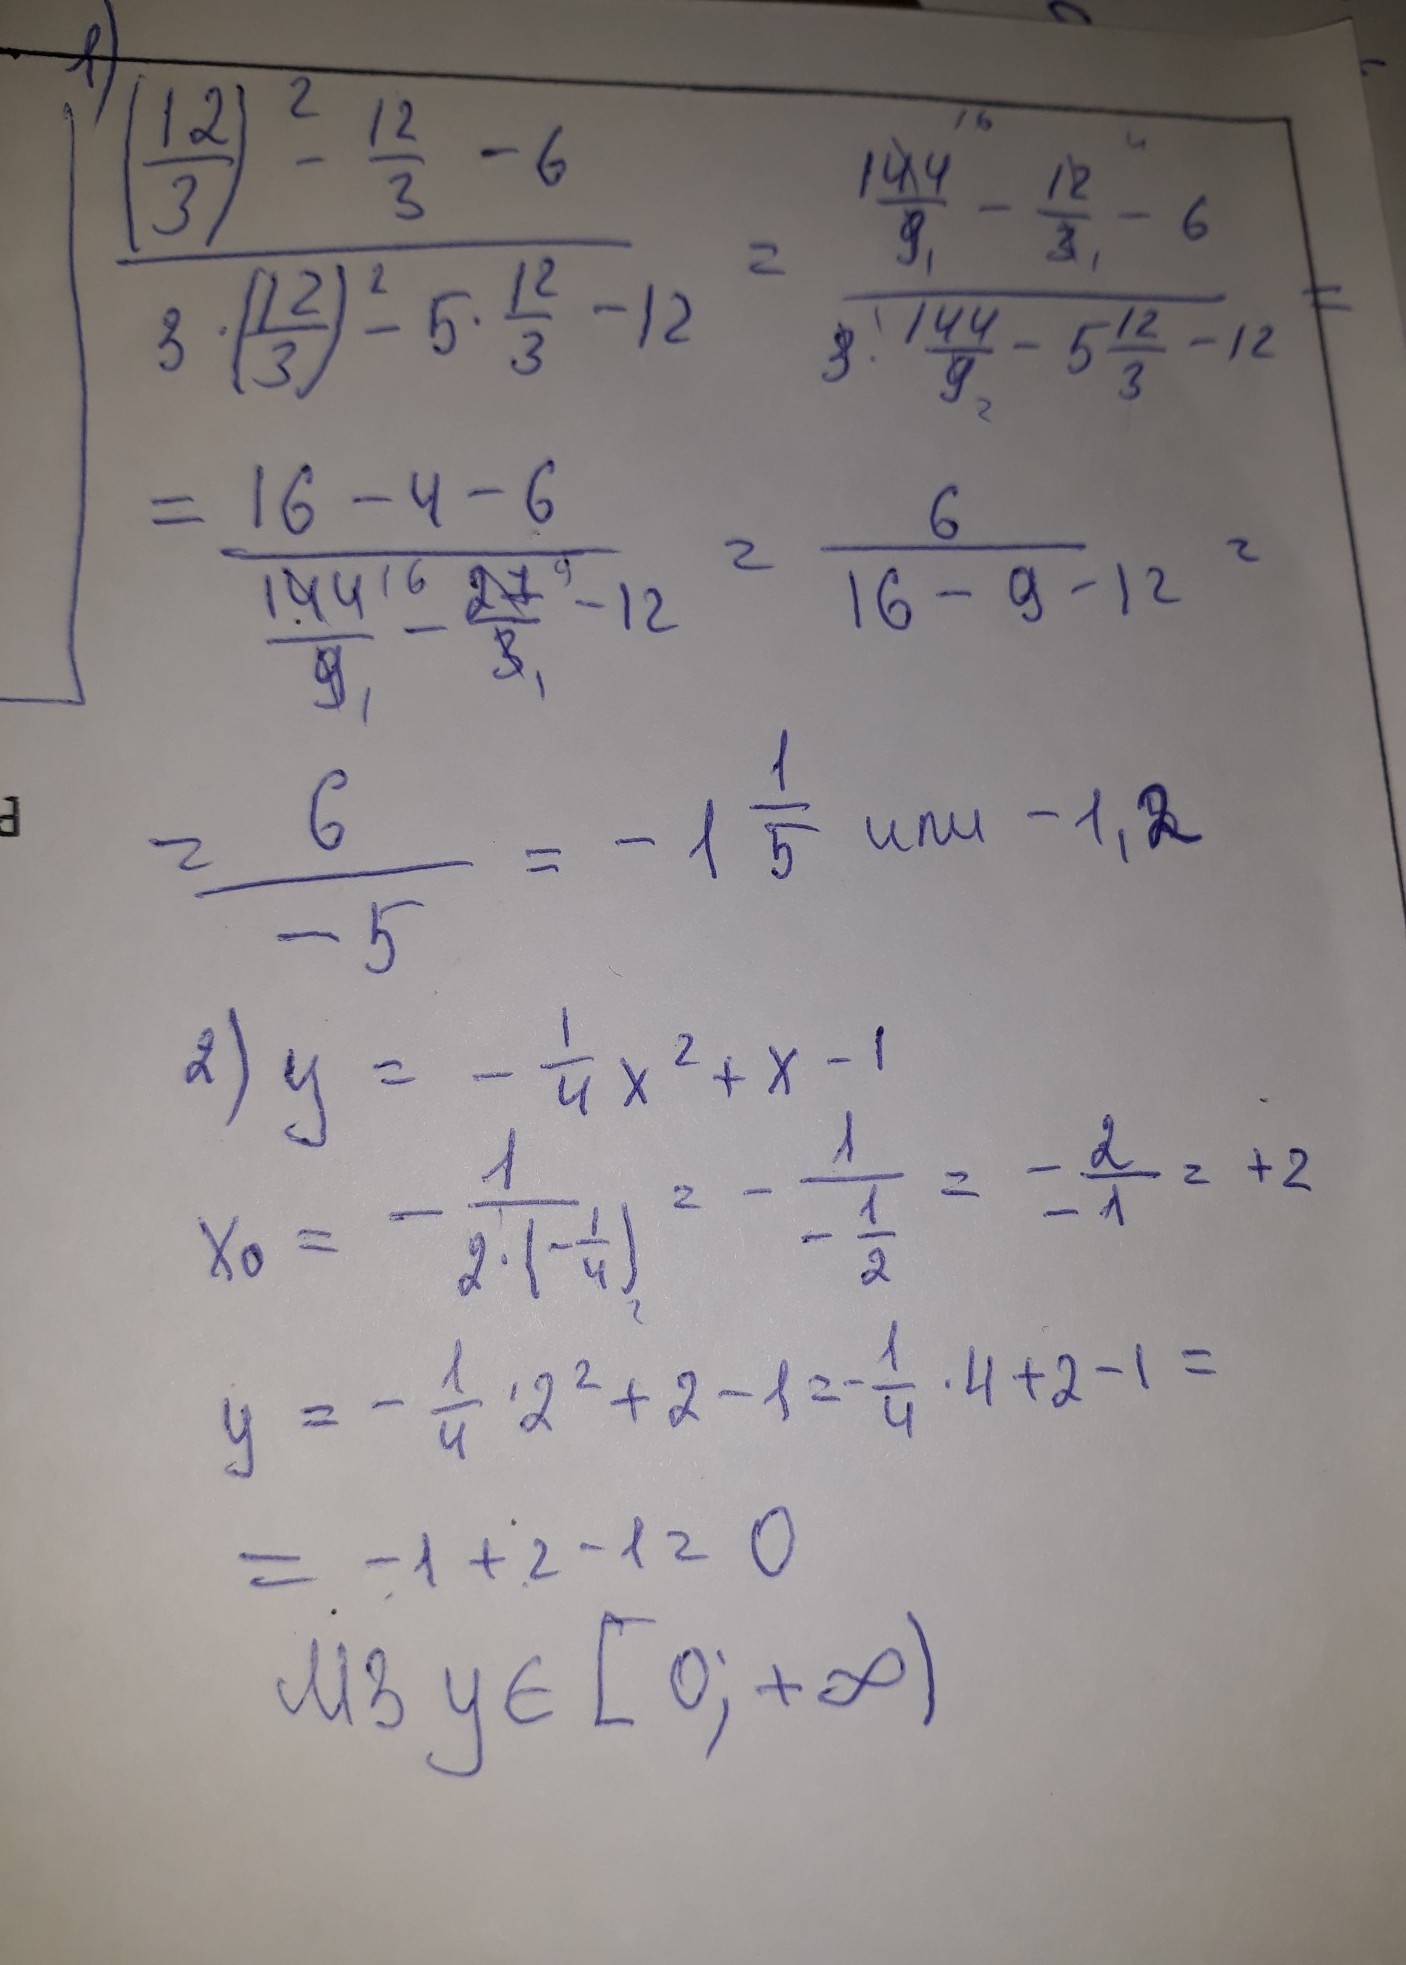 1)
(12/3)² - 12/3 - 6 / 3·(12/3)² - 5·12/3 - 12 = 144/9 - 12/3 - 6 / 3·144/9 - 5 12/3 - 12 =
= 16 - 4 - 6 / 144/9 - 27/3 - 12 = 6 / 16 - 9 - 12 =
= 6 / -5 = -1 1/5 или -1,2
2) y = -1/4 x² + x - 1
x₀ = - 1 / 2·(-1/4) = - 1 / -1/2 = - 2 / -1 = +2
y = -1/4 · 2² + 2 - 1 = -1/4 · 4 + 2 - 1 =
= -1 + 2 - 1 = 0
МЗ y ∈ [0; +∞)